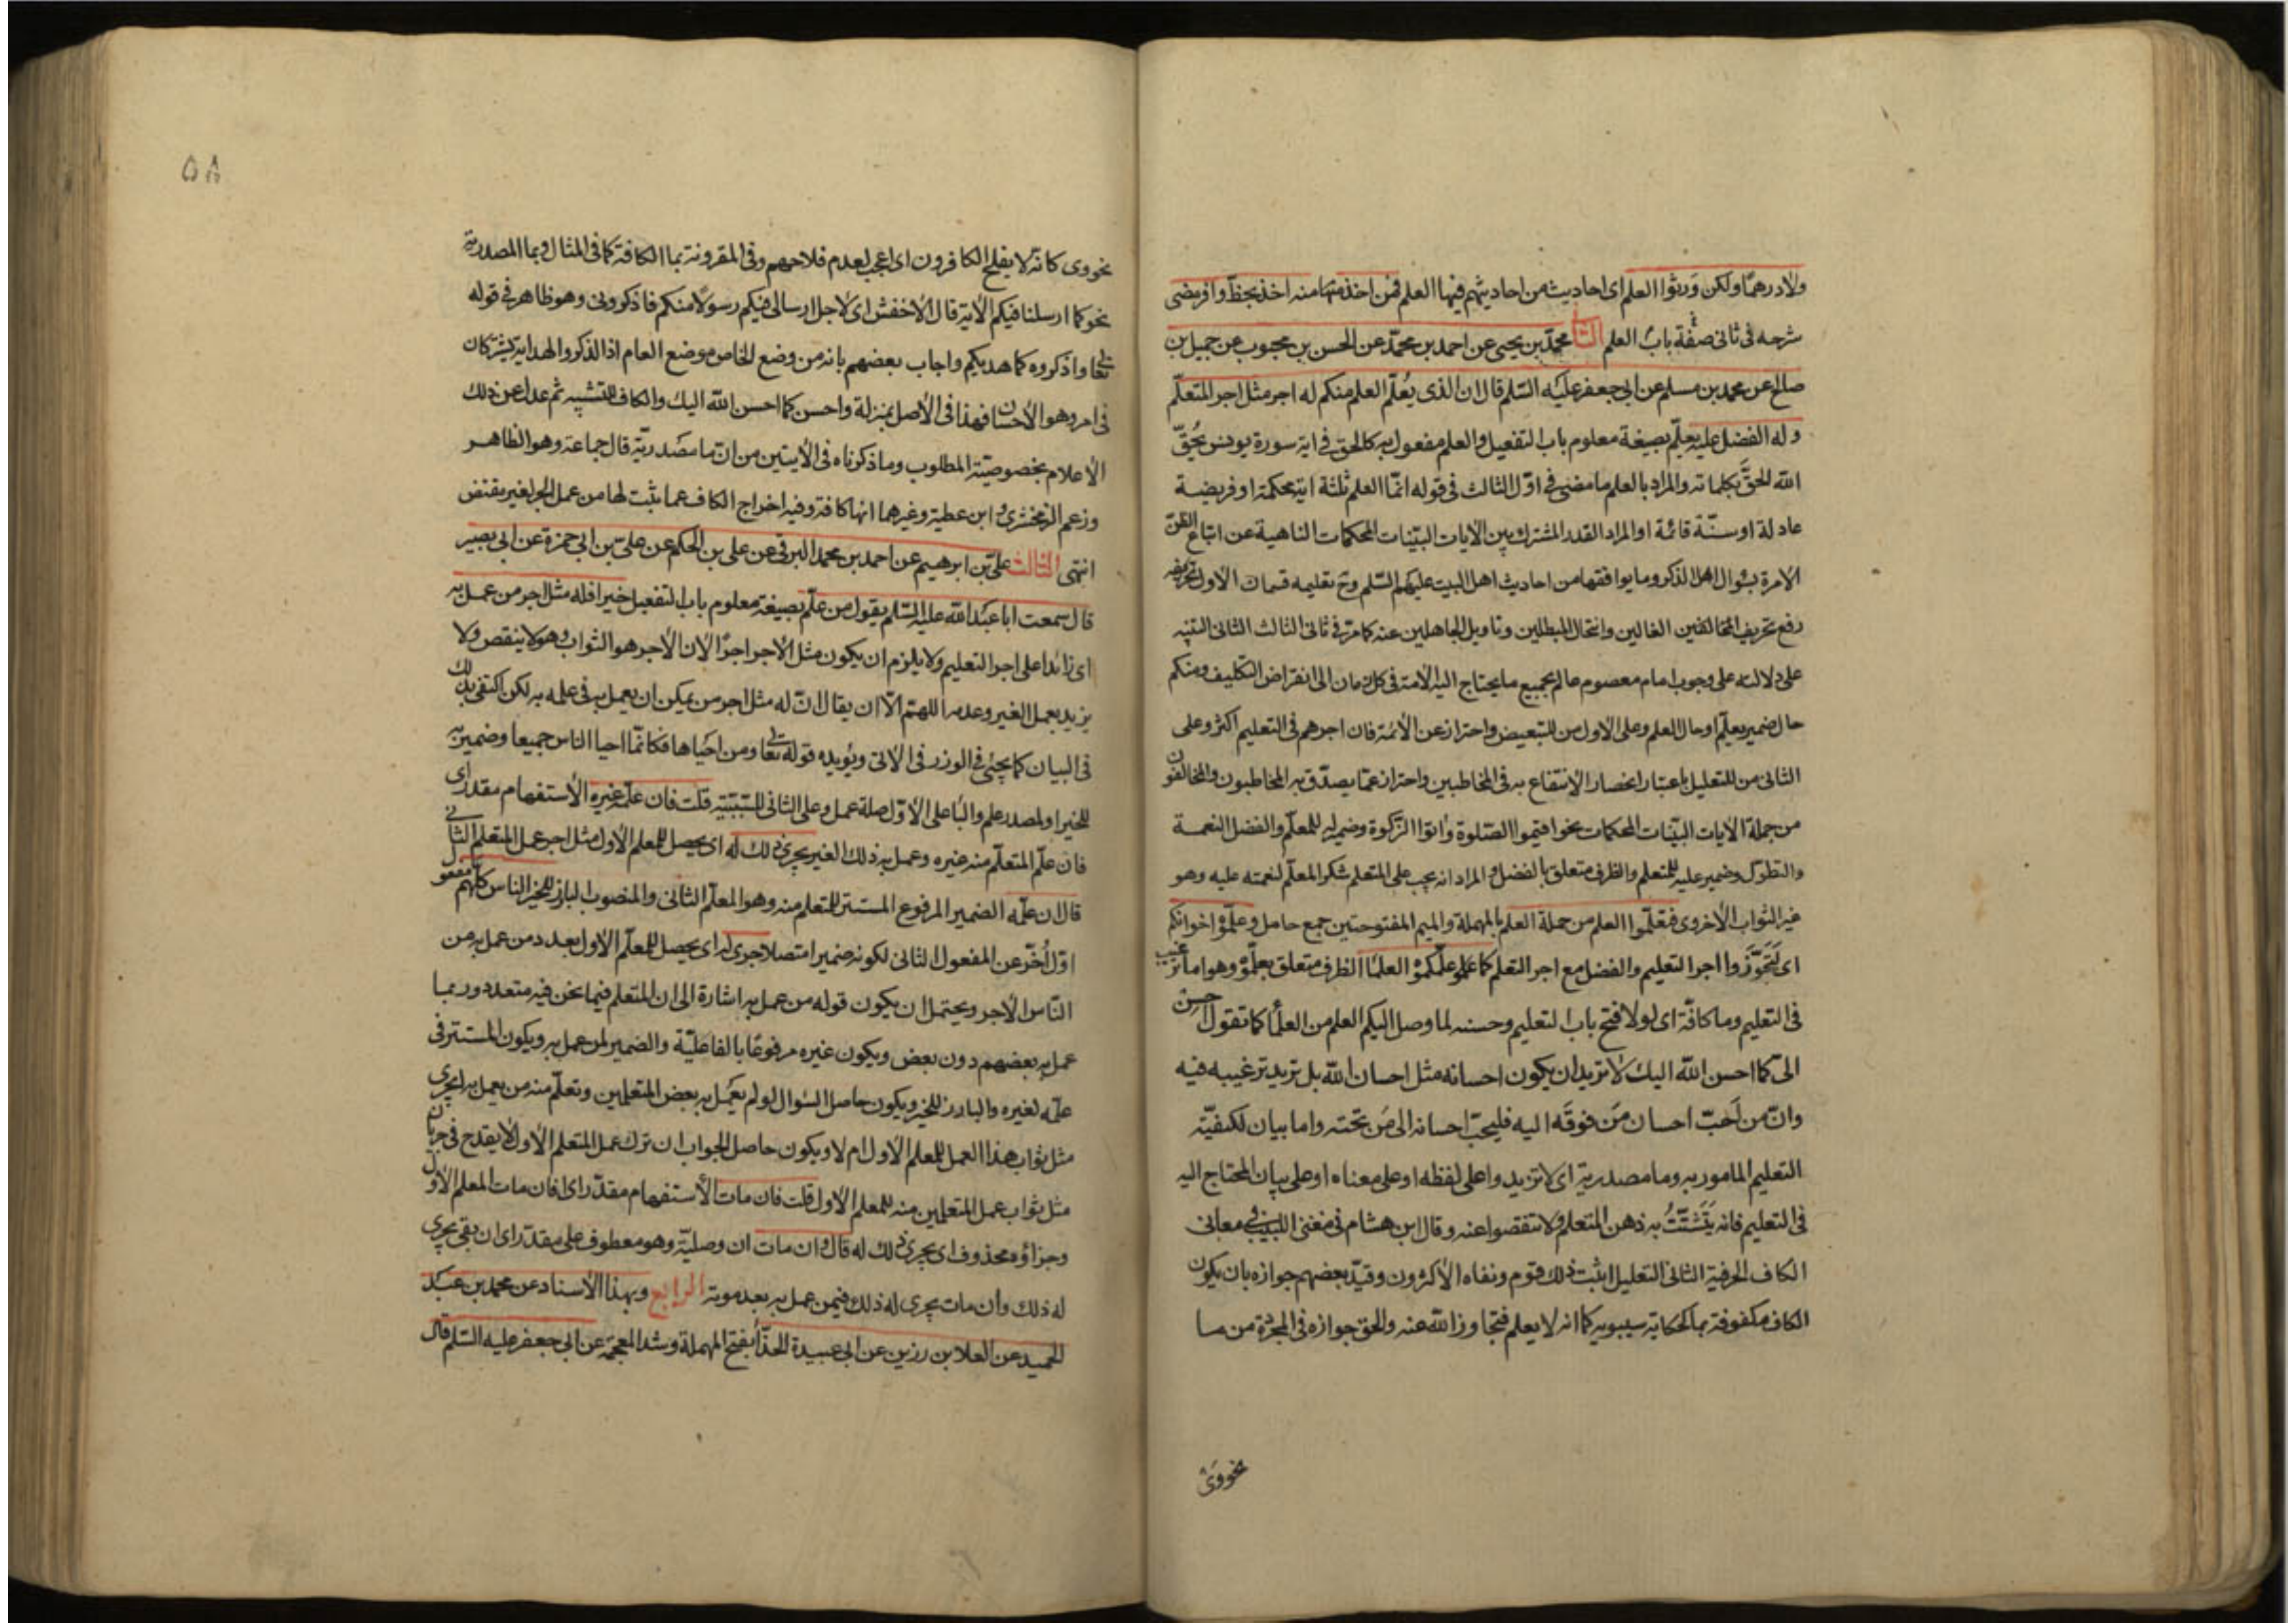 ولا درهما ولكن ورثوا العلم اى احاديث من احاديثهم فيها العلم فمن اخذ منها منه اخذ بحظ وافر مضى
شرحه فى ثانى صفة باب العلم محمّد بن يحيى عن احمد بن محمّد عن الحسن بن محبوب عن جميل بن
صالح عن محمد بن مسلم عن ابى جعفر عليه السّلم قال ان الذى يُعلّم العلم منكم له اجر مثل اجر المتعلّم
وله الفضل عليه يعلّم بصيغة معلوم باب التفعيل والعلم مفعول به كالحق فى اية سورة يونس يُحِقّ
الله الحقَّ بكلماته والمراد بالعلم ما مضى فى اوّل الثالث فى قوله انّما العلم ثلثة اية محكمة او فريضة
عادلة او سنّة قائمة او المراد القدر المشترك بين الايات البيّنات المحكمات الناهية عن اتباع الظنّ
الامرة بسؤال اهل الذكر وما يوافقها من احاديث اهل البيت عليهم السّلم وح تعليمه قسمان الاول
رفع تحريف المخالفين الغالين وانتحال المبطلين وتاويل الجاهلين عنه كما مرّ فى ثانى الثالث الثانى التنبيه
على دلالته على وجوب امام معصوم عالم بجميع ما يحتاج اليه الامة فى كل زمان الى انقراض التكليف ومنكم
حال ضمير يعلّم او حال للعلم وعلى الاول من للتبعيض واحتراز عن الأئمة فان اجرهم فى التعليم اكثر وعلى
الثانى من للتعليل باعتبار انحصار الانتفاع به فى المخاطبين واحتراز عمّا يصدّق به المخاطبون والمخالفون
من جملة الايات البيّنات المحكمات نحو اقيموا الصّلوة واتوا الزّكوة وضمير له للمعلّم والفضل النعمة
والتطوّل وضمير عليه للمتعلم والظرف متعلق بالفضل والمراد انه يجب على المتعلم شكر المعلّم لنعمته عليه وهو
غير الثواب الاخروى فتعلّموا العلم من حملة العلم بالمهملة والميم المفتوحتين جمع حامل وعلّموه اخوانكم
اى لتحوزوا اجر التعليم والفضل مع اجر التعلم كما علّمكموه العلما الظرف متعلق بعلّموه وهو اما ترغيب
فى التعليم وما كافّة اى لولا فتح باب التعليم وحسنه لما وصل اليكم العلم من العلما كما تقول احسن
الىّ كما احسن الله اليك لا تريد ان يكون احسانه مثل احسان الله بل تريد ترغيبه فيه
وانّ من احبّ احسان مَن فوقَه اليه فليحبّ احسانه الى مَن تحته واما بيان لكيفيّة
التعليم المامور به وما مصدرية اى لا تزيدوا على لفظه او على معناه او على بيان المحتاج اليه
فى التعليم فانه يتشتّت به ذهن المتعلم ولا تنقصوا عنه وقال ابن هشام فى مغنى اللبيب فى معانى
الكاف الحرفية الثانى التعليل اثبت ذلك قوم ونفاه الاكثرون وقيّد بعضهم جوازه بان يكون
الكاف مكفوفة بما كحكاية سيبويه كما انه لا يعلم فتجاوز الله عنه والحق جوازه فى المجردة من ما
نحو وى
٥٨
نحو وى كانّه لا يفلح الكافرون اى اعجب لعدم فلاحهم وفى المقرونة بما الكافة كما فى المثال وبما المصدرية
نحو كما ارسلنا فيكم الاية قال الاخفش اى لاجل ارسالى فيكم رسولا منكم فاذكرونى وهو ظاهر فى قوله
تعا واذكروه كما هديكم واجاب بعضهم بانه من وضع الخاص موضع العام اذ الذكر والهداية يشتركان
فى امر وهو الاحسان فهذا فى الاصل بمنزلة واحسن كما احسن الله اليك والكاف للتشبيه ثم عدل عن ذلك
الاعلام بخصوصيّة المطلوب وما ذكرناه فى الايتين من انّ ما مصدريّة قال جماعة وهو الظاهر
وزعم الزمخشرى وابن عطية وغيرهما انها كافة وفيه اخراج الكاف عما ثبت لها من عمل الجر لغير مقتض
انتهى الثالث علىّ بن ابرهيم عن احمد بن محمد البرقى عن على بن الحكم عن علىّ بن ابى حمزة عن ابى بصير
قال سمعت ابا عبد الله عليه السّلم يقول من علّم بصيغة معلوم باب التفعيل خيرا فله مثل اجر من عمل به
اى زائدا على اجر التعليم ولا يلزم ان يكون مثل الاجر اجرا الان الاجر هو الثواب وهو لا ينقص ولا
يزيد بعمل الغير وعدمه اللهمّ الّا ان يقال انّ له مثل اجر من يمكن ان يعمل به فى علمه به لكن اكتفى بذلك
فى البيان كما يجئ فى الوزر فى الاتى ويؤيده قوله تعا ومن احياها فكانّما احيا الناس جميعا وضمير به
للخير او لمصدر علم والبا على الاوّل صلة عمل وعلى الثانى للسّببيّة قلت فان علّمه غيره الاستفهام مقدر اى
فان علّم المتعلّم منه غيره وعمل به ذلك الغير يجرى ذلك له اى يحصل للمعلم الاول مثل اجر عمل المتعلم الثانى
قال ان علّمه الضمير المرفوع المستتر للمتعلم منه وهو المعلّم الثانى والمنصوب البارز للخير الناس كلّهم مفعول
اوّل اُخّر عن المفعول الثانى لكونه ضميرا متصلا جرى له اى يحصل للمعلّم الاول بعدد من عمل به من
النّاس الاجر ويحتمل ان يكون قوله من عمل به اشارة الى ان المتعلم فيما نحن فيه متعدد وربما
عمل به بعضهم دون بعض ويكون غيره مرفوعًا بالفاعليّة والضمير لمن عمل به ويكون المستتر فى
علّمه لغيره والبارز للخير ويكون حاصل السّوال لو لم يعمل به بعض المتعلمين وتعلّم منه من يعمل به ايجرى
مثل ثواب هذا العمل للمعلم الاول ام لا ويكون حاصل الجواب ان ترك عمل المتعلم الاول لا يقدح فى جريان
مثل ثواب عمل المتعلمين منه للمعلم الاول قلت فان مات الاستفهام مقدّر اى افان مات المعلم الاول
وجزاؤه محذوف اى يجرى ذلك له قال وان مات ان وصليّة وهو معطوف على مقدّر اى ان بقى يجرى
له ذلك وان مات يجرى له ذلك فيمن عمل به بعد موته الرابع وبهذا الاسناد عن محمد بن عبد
الحميد عن العلا بن رزين عن ابى عبيدة الحذّا بفتح المهملة وشد المعجمة عن ابى جعفر عليه السّلم قال